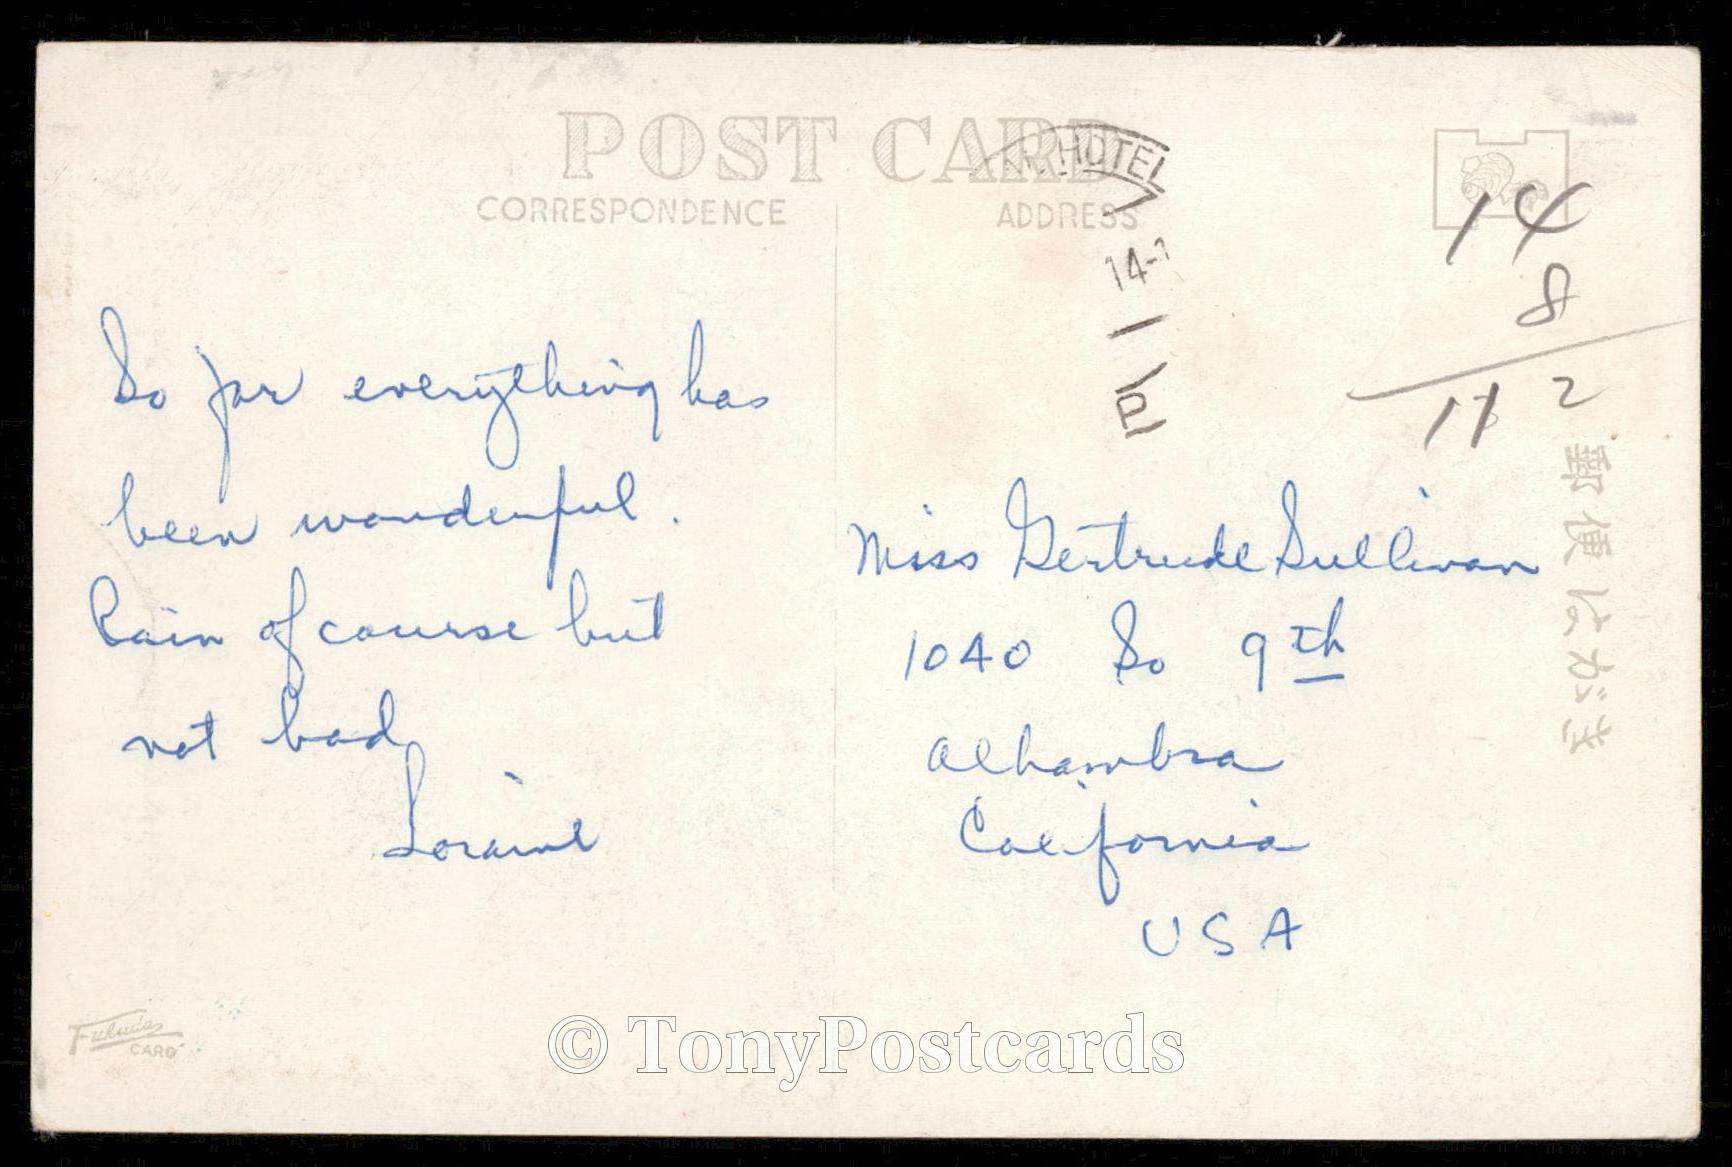 POST CARD
CORRESPONDENCE
ADDRESS
HOTEL
14-
14
8
112
郵便はがき
So far everything has
been wonderful.
Rain of course but
not bad
Loraine
Miss Gertrude Sullivan
1040 So 9th
Alhambra
California
USA
CARD
© TonyPostcards